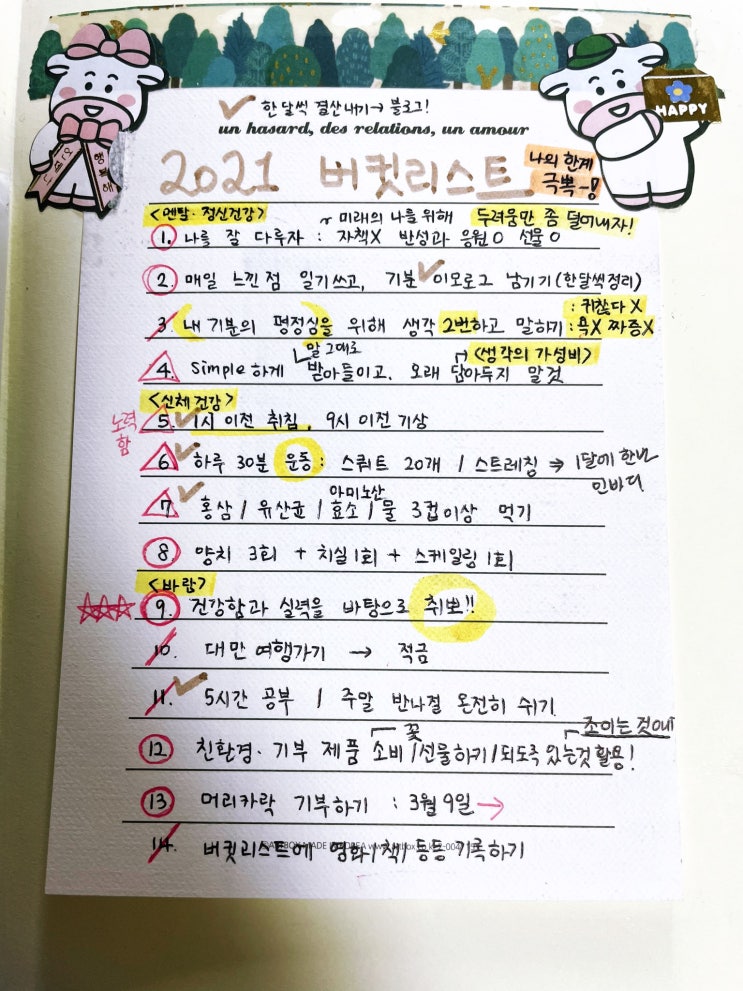 한 달씩 결산내기→ 블로그!
HAPPY
un hasard, des relations, un amour
행복해
2021 버킷리스트 나의 한계 극뽁~!
<멘탈·정신건강> ~ 미래의 나를 위해 두려움만 좀 덜어내자!
1. 나를 잘 다루자 : 자책X 반성과 응원O 선물O
2. 매일 느낀점 일기쓰고, 기분 이모로그 남기기 (한달씩정리)
: 귀찮다 X
3. 내 기분의 평정심을 위해 생각 2번하고 말하기 : 욕X 짜증X
말 그대로 <생각의 가성비>
4. Simple하게 받아들이고, 오래 담아두지 말것
<신체 건강>
노력함 5. 1시 이전 취침, 9시 이전 기상
6. 하루 30분 운동 : 스쿼트 20개 / 스트레칭 ⇒ 1달에 한번 인바디
아미노산
7. 홍삼 / 유산균 / 효소 / 물 3컵이상 먹기
8. 양치 3회 + 치실 1회 + 스케일링 1회
<바람>
9. 건강함과 실력을 바탕으로 취뽀!!
10. 대만 여행가기 → 적금
11. 5시간 공부 / 주말 반나절 온전히 쉬기
꽃 조이는 것out
12. 친환경·기부 제품 소비 / 선물하기 / 되도록 있는것 활용!
13. 머리카락 기부하기 : 3월 9일 →
14. 버킷리스트에 영화/책/ 등등 기록하기